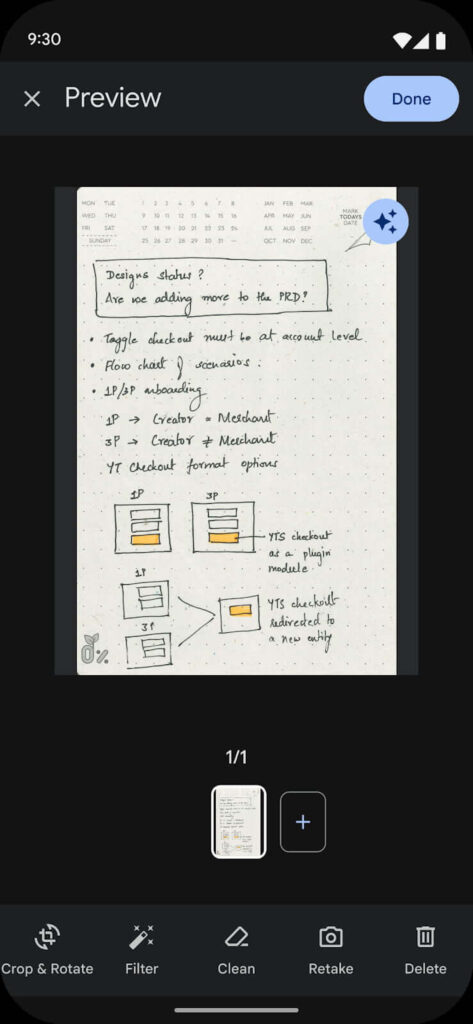 9:30
Preview
Done
MON TUE 1 2 3 4 5 6 7 8 JAN FEB MAR
WED THU 9 10 11 12 13 14 15 16 APR MAY JUN
FRI SAT 17 18 19 20 21 22 23 24 JUL AUG SEP
SUNDAY 25 26 27 28 29 30 31 — OCT NOV DEC
MARK
TODAYS
DATE
Designs status?
Are we adding more to the PRD?
• Toggle checkout must be at account level.
• Flow chart of scenarios.
• 1P/3P onboarding
1P → Creator = Merchant
3P → Creator ≠ Merchant
YT Checkout format options
1P 3P
YTS checkout
as a plugin
module.
1P
3P
YTS checkout
redirected to
a new entity
0%
1/1
Crop & Rotate
Filter
Clean
Retake
Delete